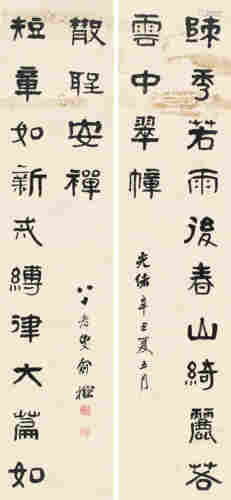 疎秀若雨後春山綺麗若
雲中翠幢
光緒辛丑夏五月
短章如新戒縛律大篇如
散聖安禪
老叟俞樾